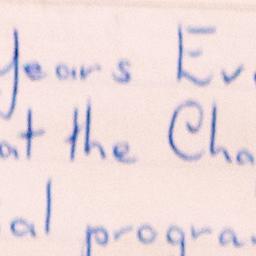 Years Ev
at the Cha
al progra